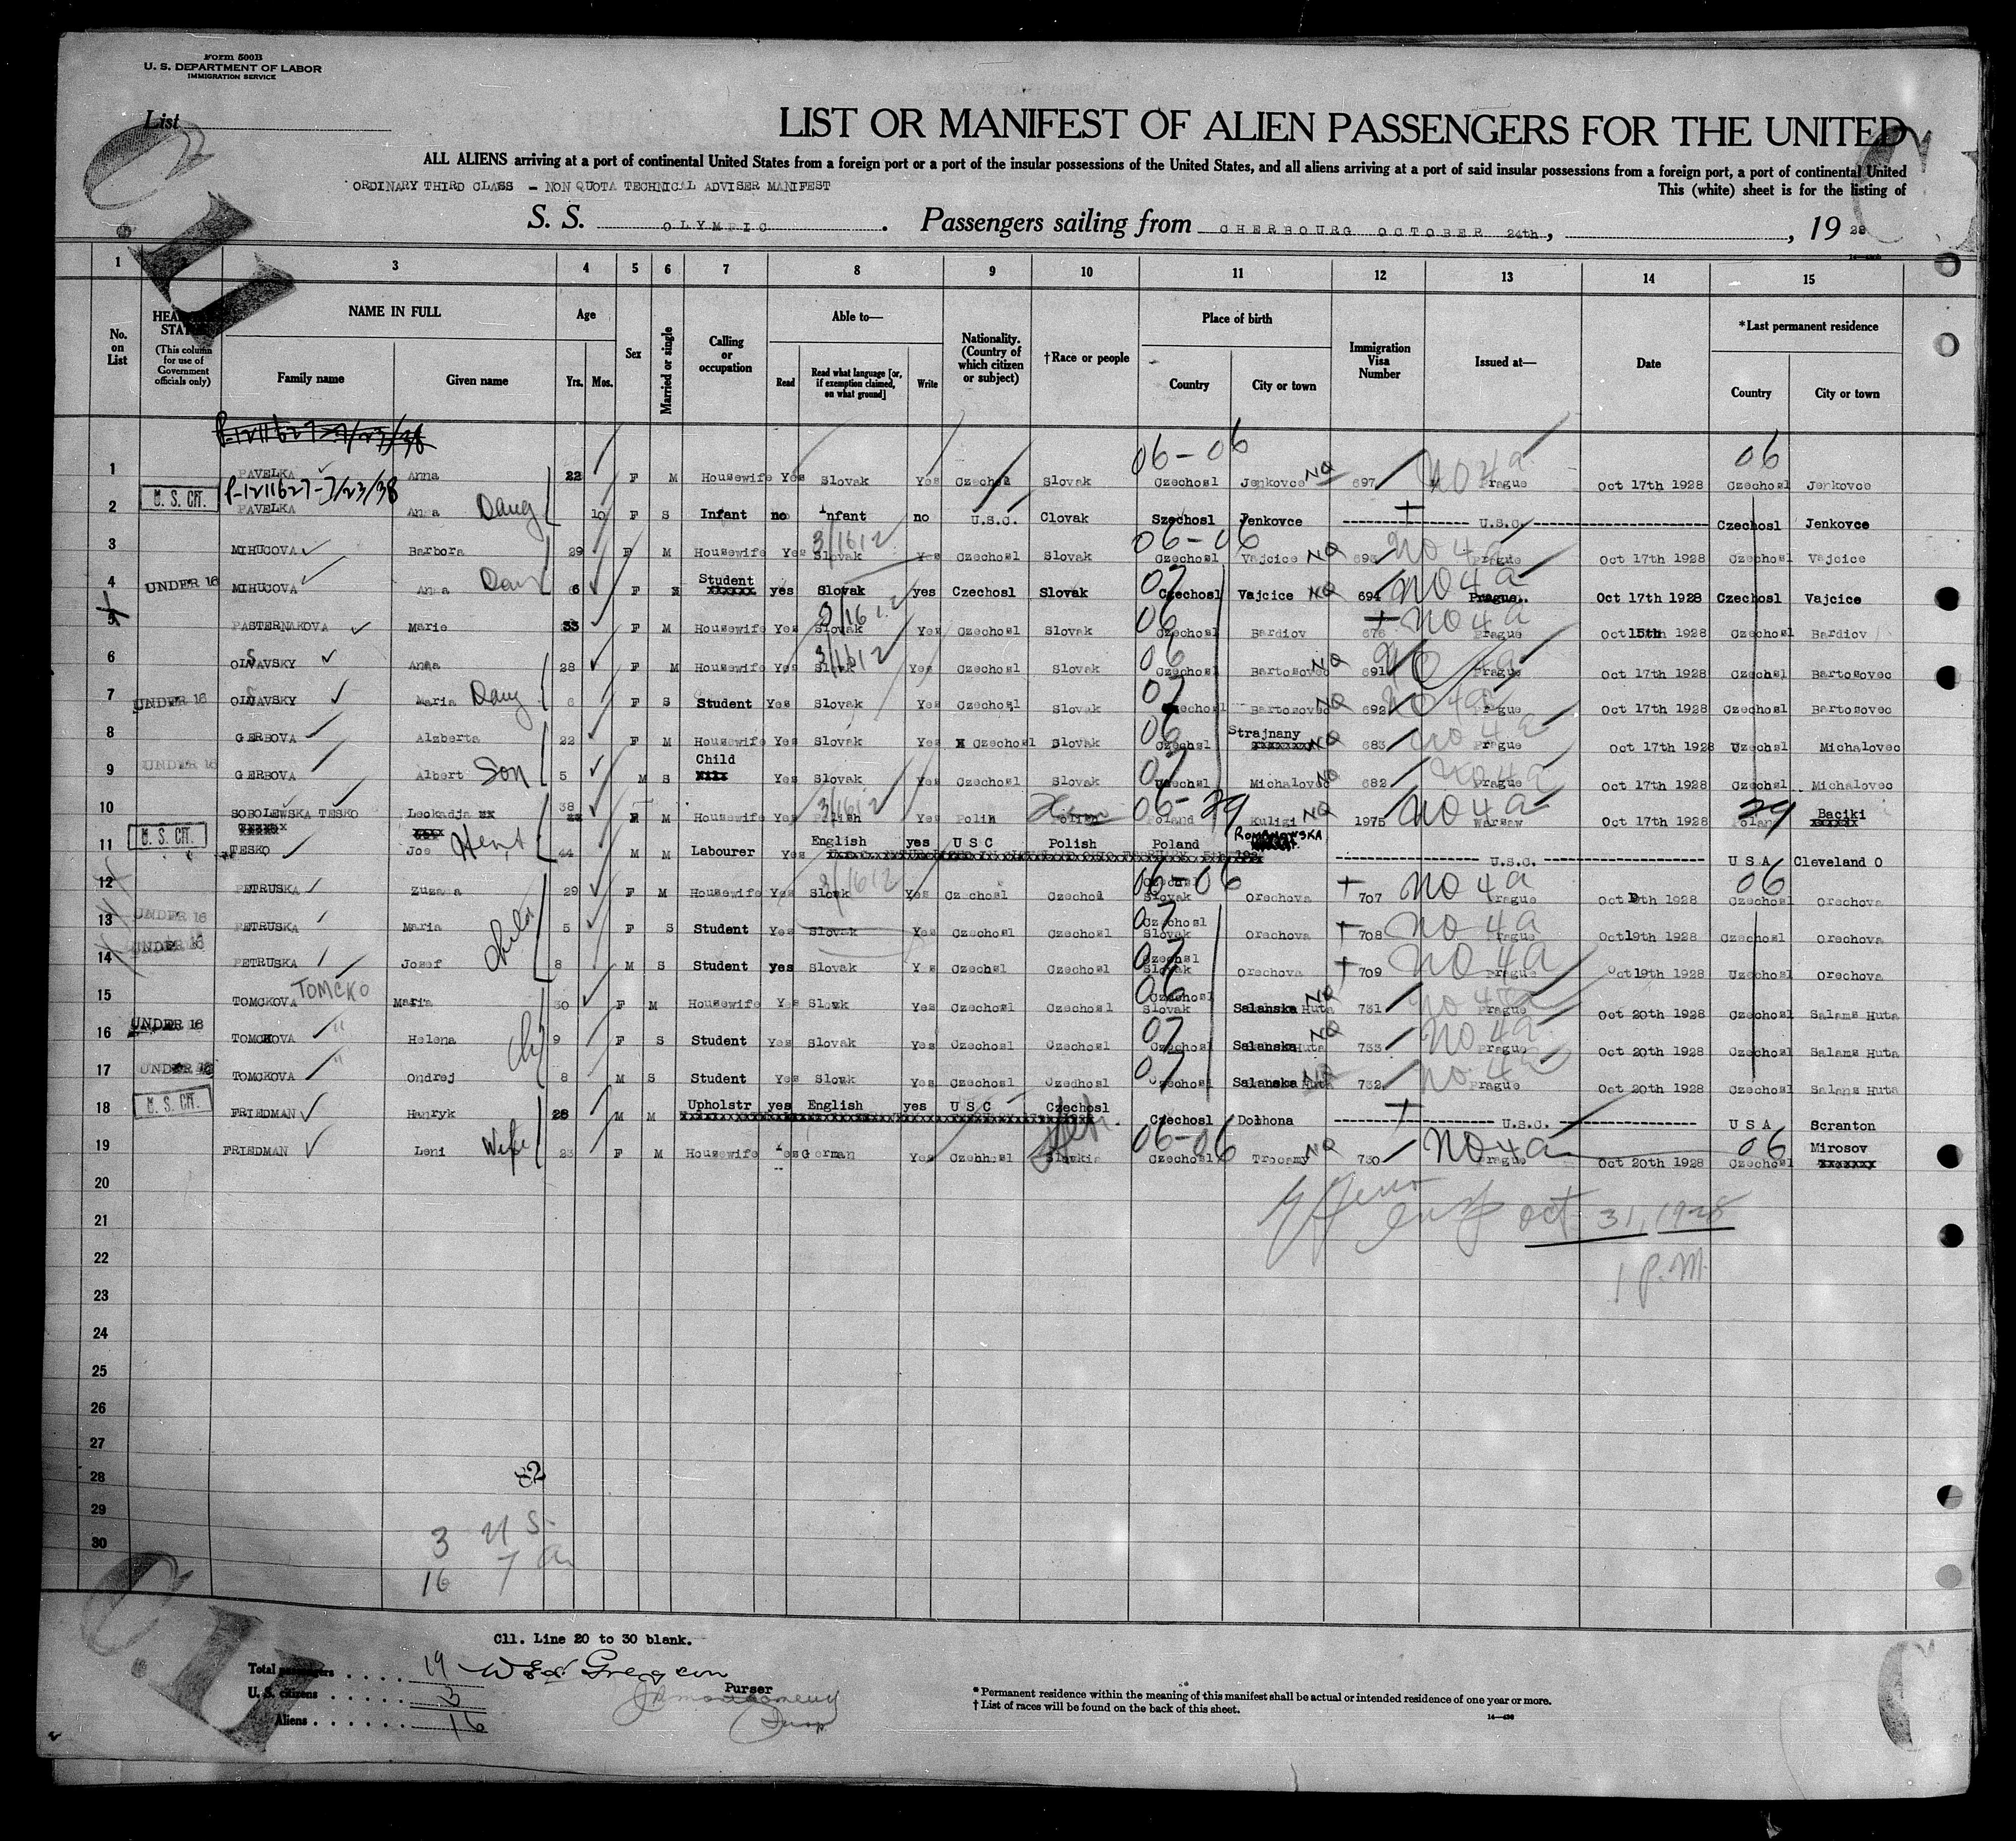 Form 500B
U. S. DEPARTMENT OF LABOR
IMMIGRATION SERVICE
List
LIST OR MANIFEST OF ALIEN PASSENGERS FOR THE UNITED
ALL ALIENS arriving at a port of continental United States from a foreign port or a port of the insular possessions of the United States, and all aliens arriving at a port of said insular possessions from a foreign port, a port of continental United
ORDINARY THIRD CLASS - NON QUOTA TECHNICAL ADVISER MANIFEST
This (white) sheet is for the listing of
S. S. OLYMPIC. Passengers sailing from CHERBOURG OCTOBER 24th, , 19 28
1 3 4 5 6 7 8 9 10 11 12 13 14 15
No. on List
HEAD STATUS (This column for use of Government officials only)
NAME IN FULL Family name Given name
Age Yrs. Mos.
Sex
Married or single
Calling or occupation
Able to— Read Read what language [or, if exemption claimed, on what ground] Write
Nationality. (Country of which citizen or subject)
†Race or people
Place of birth Country City or town
Immigration Visa Number
Issued at—
Date
*Last permanent residence Country City or town
P-1211627-7/23/38
06-06 06
1 PAVELKA Anna 22 F M Housewife Yes Slovak Yes Czechsl Slovak Czechosl Jenkovce NQ 697 NO 4a Prague Oct 17th 1928 Czechosl Jenkovce
U. S. CIT. P-1211627-7/23/38
2 PAVELKA Anna Daug 10 F S Infant no Infant no U.S.C. Clovak Szechosl Jenkovce U.S.C. Czechosl Jenkovce
3 MIHUCOVA Barbora 29 F M Housewife Yes Slovak 3/1612 Yes Czechosl Slovak 06-06 Czechosl Vajcice NQ 693 NO 4a Prague Oct 17th 1928 Czechosl Vajcice
4 UNDER 16 MIHUCOVA Anna Daug 6 F Student yes Slovak yes Czechosl Slovak 07 Czechosl Vajcice NQ 694 NO 4a Prague. Oct 17th 1928 Czechosl Vajcice
5 PASTERNAKOVA Marie 33 F M Housewife Yes Slovak 3/1612 Yes Czechosl Slovak 06 Czechosl Bardiov 676 NO 4a Prague Oct 15th 1928 Czechosl Bardiov
6 OLSAVSKY Anna 28 F M Housewife Yes Slovak 3/1612 Yes Czechosl Slovak 06 Czechosl Bartosovec NQ 691 NO 4a Prague Oct 17th 1928 Czechsl Bartosovec
7 UNDER 16 OLSAVSKY Maria Daug 6 F S Student Yes Slovak Yes Czechosl Slovak 07 Czechosl Bartosovec NQ 692 NO 4a Prague Oct 17th 1928 Czechosl Bartosovec
8 GERBOVA Alzberta 22 F M Housewife Yes Slovak Yes Czechosl Slovak 06 Czechsl Strajnany NQ 683 NO 4a Prague Oct 17th 1928 Czechsl Michalovec
9 UNDER 16 GERBOVA Albert Son 5 M S Child Yes Slovak Yes Czechosl Slovak 07 Czechsl Michalovec NQ 682 NO 4a Prague Oct 17th 1928 Czechsl Michalovec
10 SOBOLEWSKA TESKO Leokadja 38 F M Housewife Yes Polish 3/1612 Yes Polin Polish 06-29 Poland Kuligi NQ 1975 NO 4a Warsaw Oct 17th 1928 29 Poland Baciki
11 U. S. CIT. TESKO Joe 44 M M Labourer Yes English yes U S C Polish Poland ROMANOWSKA U.S.C. U S A Cleveland O
12 PETRUSKA Zuzana 29 F M Housewife Yes Slovak 3/1612 Yes Czechosl Czechosl 06-06 Czechosl Slovak Orechova 707 NO 4a Prague Oct 19th 1928 06 Czechosl Orechova
13 UNDER 16 PETRUSKA Maria child 5 F S Student Yes Slovak Yes Czechosl Czechosl 07 Czechosl Slovak Orechova 708 NO 4a Prague Oct19th 1928 Czechosl Orechova
14 UNDER 16 PETRUSKA Josef 8 M S Student yes Slovak Yes Czechsl Czechosl 07 Czechsl Slovak Orechova 709 NO 4a Prague Oct19th 1928 Czechosl Orechova
15 TOMCKOVA TOMCKO Maria 30 F M Housewife Yes Slovk Yes Czechosl Czechosl 06 Czechosl Slovak Salanska Huta NQ 731 NO 4a Prague Oct 20th 1928 Czechosl Salans Huta
16 UNDER 16 TOMCKOVA " Helena 9 F S Student Yes Slovak Yes Czechosl Czechosl 07 Czechosl Salanska Huta NQ 733 NO 4a Prague Oct 20th 1928 Czechosl Salans Huta
17 UNDER 16 TOMCKOVA " Ondrej 8 M S Student Yes Slovk Yes Czechosl Czedhosl 07 Czechosl Salanska Huta NQ 732 NO 4a Prague Oct 20th 1928 Czechosl Salans Huta
18 U. S. CIT. FRIEDMAN Henryk 28 M M Upholstr yes English yes U S C Czechosl Czechosl Dolhona U.S.C. U S A Scranton
19 FRIEDMAN Leni Wife 23 F M Housewife Yes German Yes Czehhosl Slovkia 06-06 Czechosl Trocany NQ 730 NO 4a Prague Oct 20th 1928 06 Czechosl Mirosov
20
21 Oct 31, 1928
22 1 P.M.
23
24
25
26
27
28 82
29 3 U S
30 16
Cll. Line 20 to 30 blank.
Total passengers . . . . . 19
Purser
U. S. citizens . . . . . 3
Aliens . . . . . . 16
* Permanent residence within the meaning of this manifest shall be actual or intended residence of one year or more.
† List of races will be found on the back of this sheet.